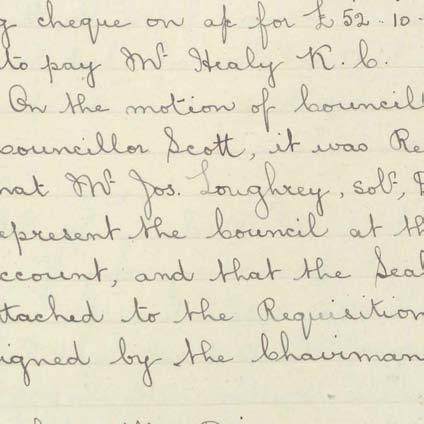 g cheque on a/c for £52.10.
to pay Mr Healy K.C.
On the motion of Councill
Councillor Scott, it was Re
hat Mr Jos. Loughrey, solr,
epresent the Council at th
ccount, and that the Seal
ttached to the Requisition
igned by the Chairman